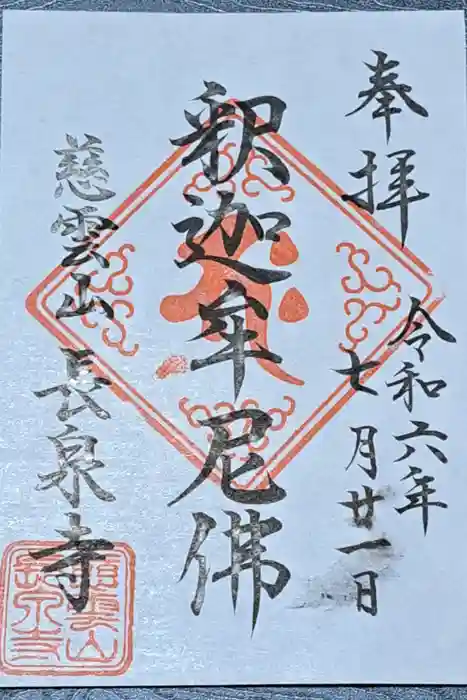 奉拝
令和六年
七月廿一日
釈迦牟尼佛
慈雲山長泉寺